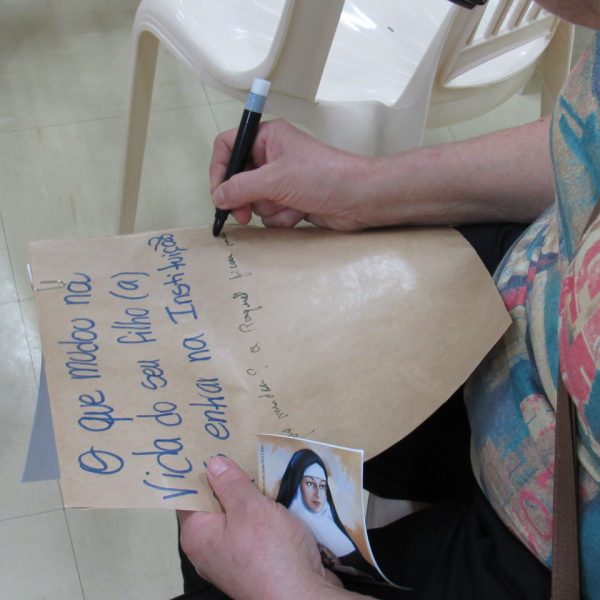 O que mudou na
vida do seu filho(a)
e entrar na Instituição
mudou? a Raquel ficou